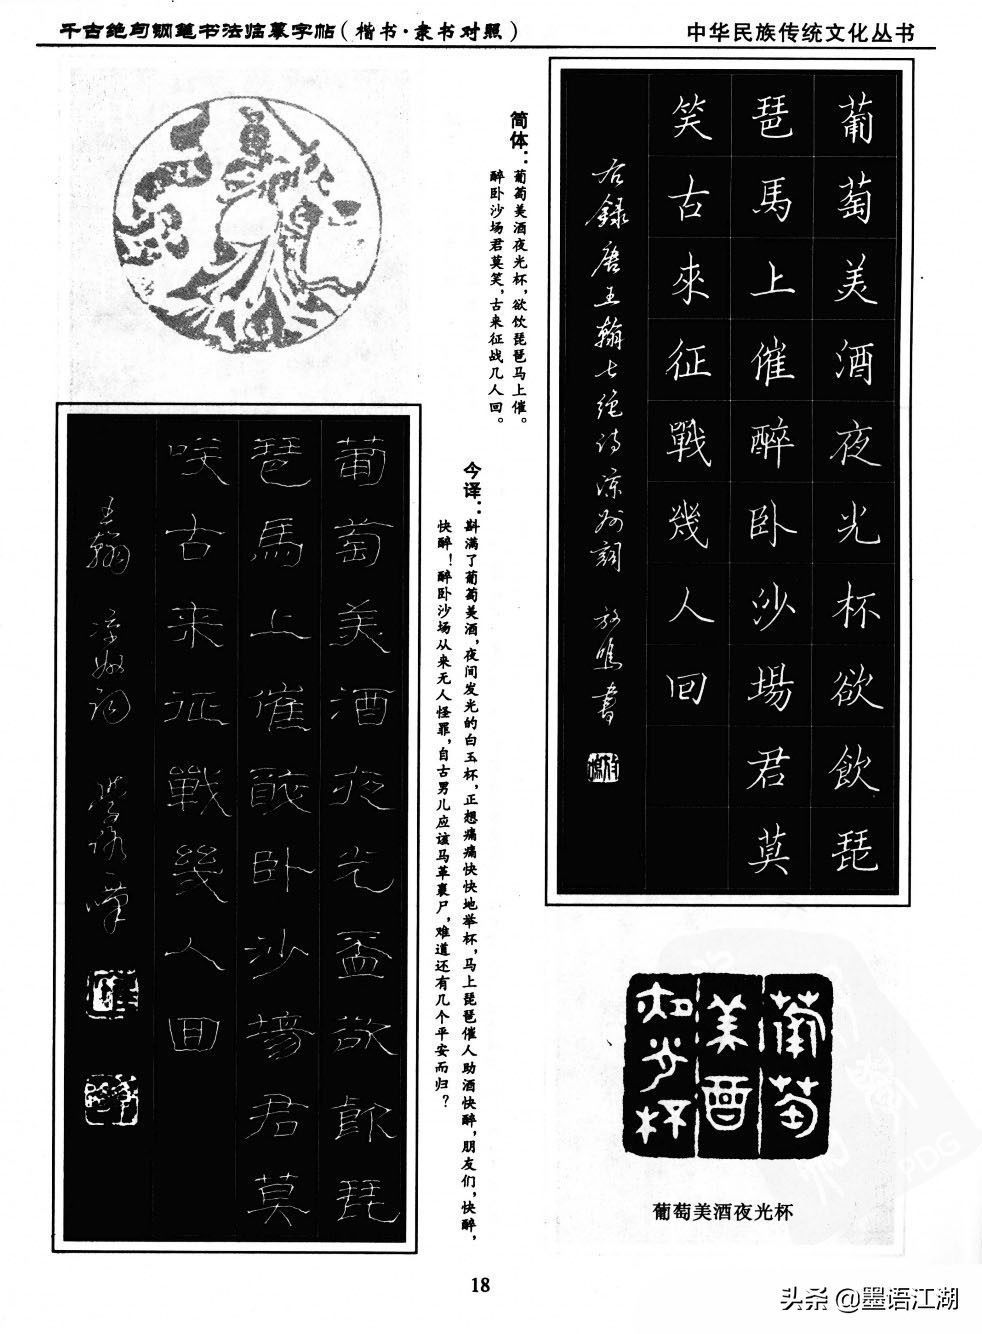 千古绝句钢笔书法临摹字帖(楷书·隶书对照)
中华民族传统文化丛书
葡萄美酒夜光杯欲飲琵
琶馬上催醉卧沙場君莫
笑古來征戰幾人回
右録唐王翰七絶詩涼州詞 放鳴書
简体:葡萄美酒夜光杯,欲饮琵琶马上催。
醉卧沙场君莫笑,古来征战几人回。
今译:斟满了葡萄美酒,夜间发光的白玉杯,正想痛痛快快地举杯,马上琵琶催人助酒快醉,朋友们,快醉,
快醉!醉卧沙场从来无人怪罪,自古男儿应该马革裹尸,难道还有几个平安而归?
葡萄美酒夜光盃欲飲琵
琶馬上催醉卧沙場君莫
咲古来征戰幾人回
王翰 涼州詞
葡萄
美酒
夜光杯
葡萄美酒夜光杯
18
头条 @墨语江湖